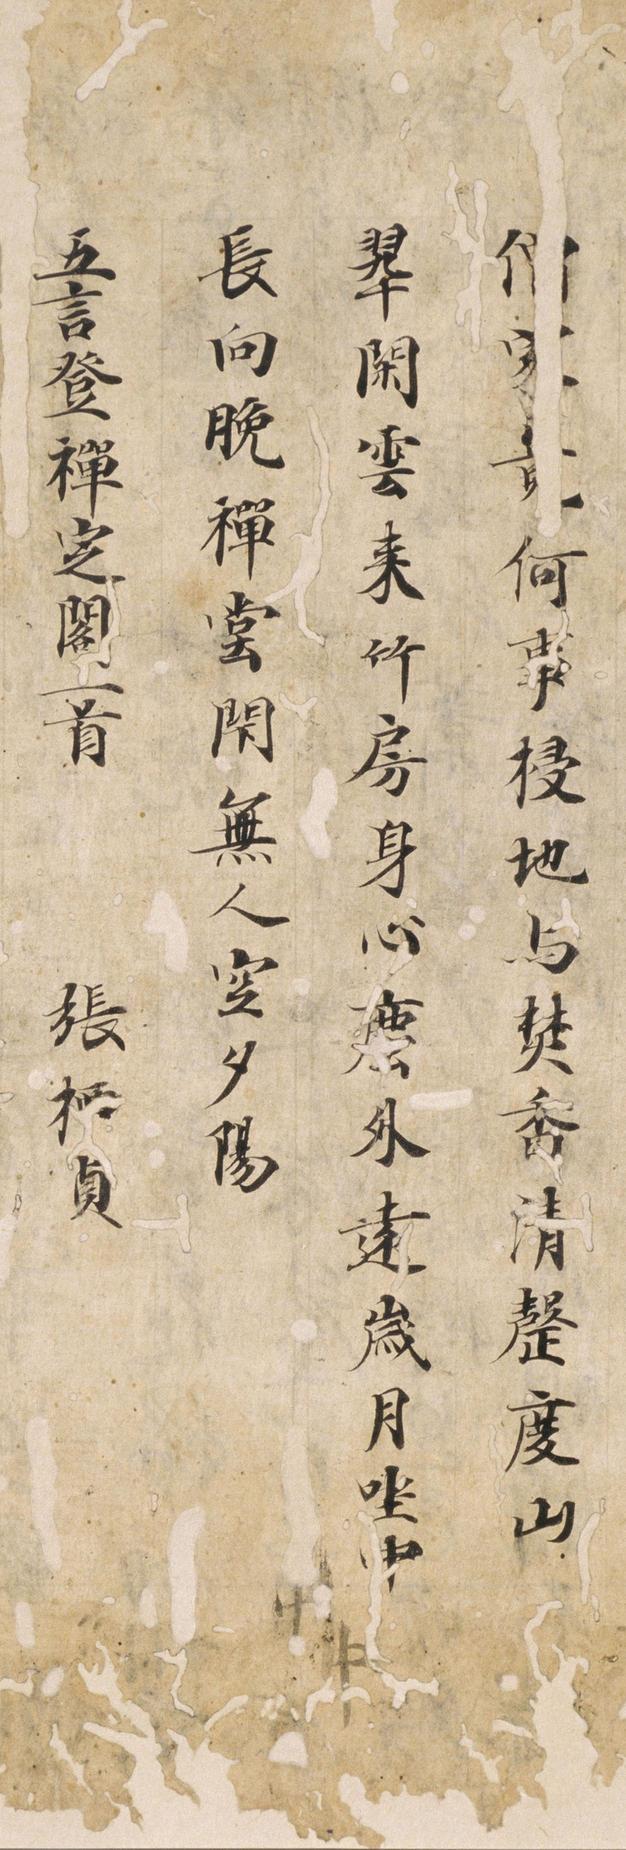 僧家竟何事掃地与焚香清磬度山
翠閑雲来竹房身心塵外遠歲月坐中
長向晚禪堂閇無人空夕陽
五言登禪定閣一首 張栖貞